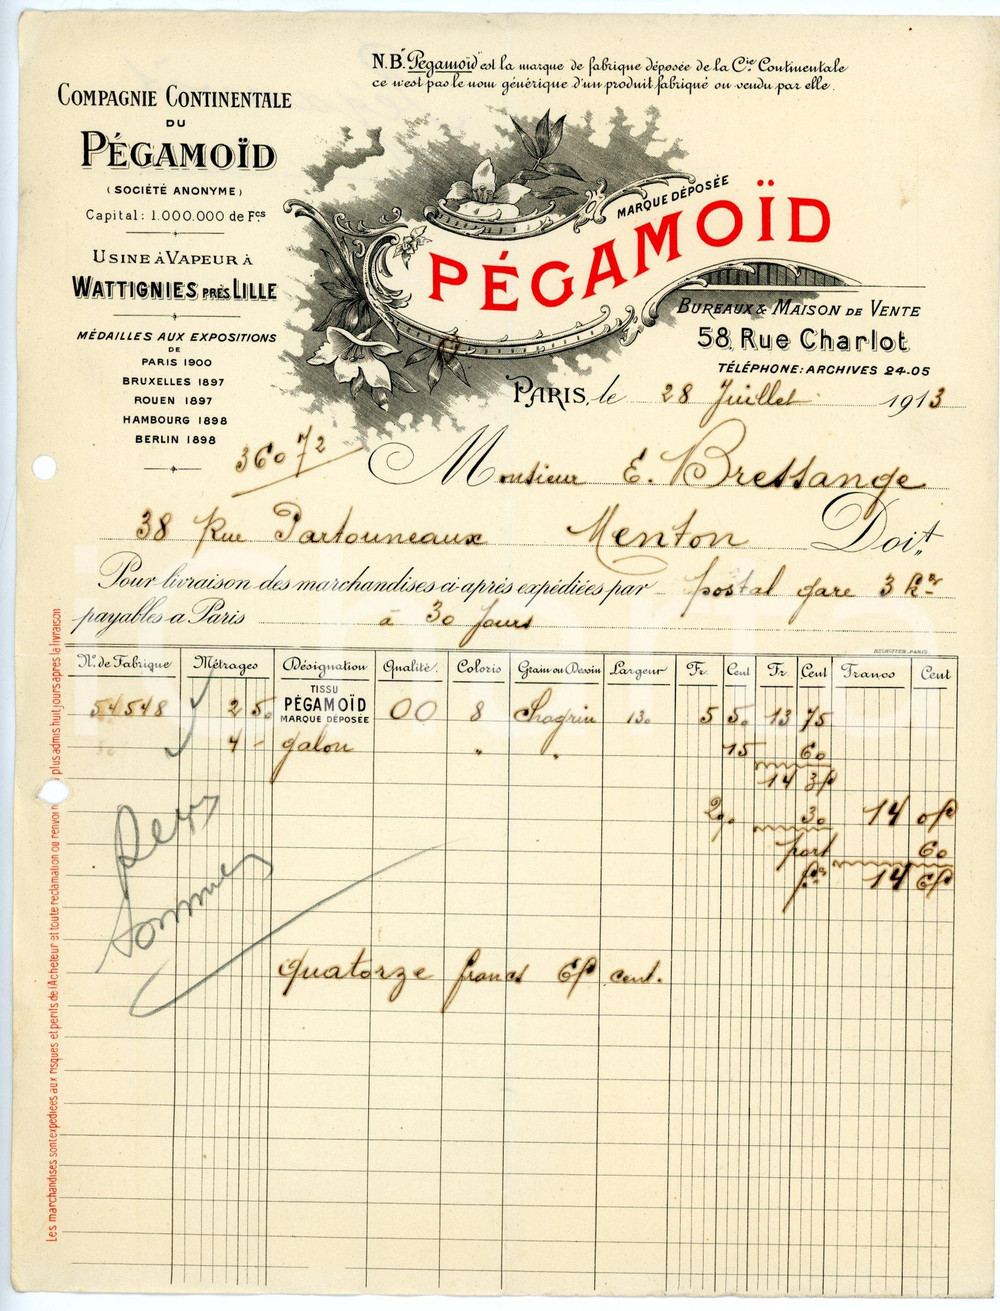 N.B. "Pégamoïd" est la marque de fabrique déposée de la Cie Continentale
ce n'est pas le nom générique d'un produit fabriqué ou vendu par elle.
COMPAGNIE CONTINENTALE
DU
PÉGAMOÏD
(SOCIÉTÉ ANONYME)
Capital: 1.000.000 de Fcs
USINE À VAPEUR À
WATTIGNIES PRÈS LILLE
MÉDAILLES AUX EXPOSITIONS
DE
PARIS 1900
BRUXELLES 1897
ROUEN 1897
HAMBOURG 1898
BERLIN 1898
MARQUE DÉPOSÉE
PÉGAMOÏD
BUREAUX & MAISON DE VENTE
58, Rue Charlot
TÉLÉPHONE: ARCHIVES 24-05
PARIS, le 28 Juillet 1913
36072
Monsieur E. Bressange
38 Rue Partouneaux Menton Doit
Pour livraison des marchandises ci-après expédiées par postal gare 3 Kos
payables a Paris à 30 jours
No. de Fabrique Métrages Désignation Qualité. Coloris Grain ou Dessin Largeur Fr. Cent Fr. Cent Francs Cent
54548 2 50 TISSU PÉGAMOÏD MARQUE DÉPOSÉE 00 8 Chagrin 130 5 50 13 75
4 - galon " " 15 60
14 35
2% 30 14 05
port 60
frs 14 65
quatorze francs 65 cent.
Les marchandises sont expédiées aux risques et périls de l'Acheteur et toute réclamation ou renvoi plus admis huit jours après la livraison